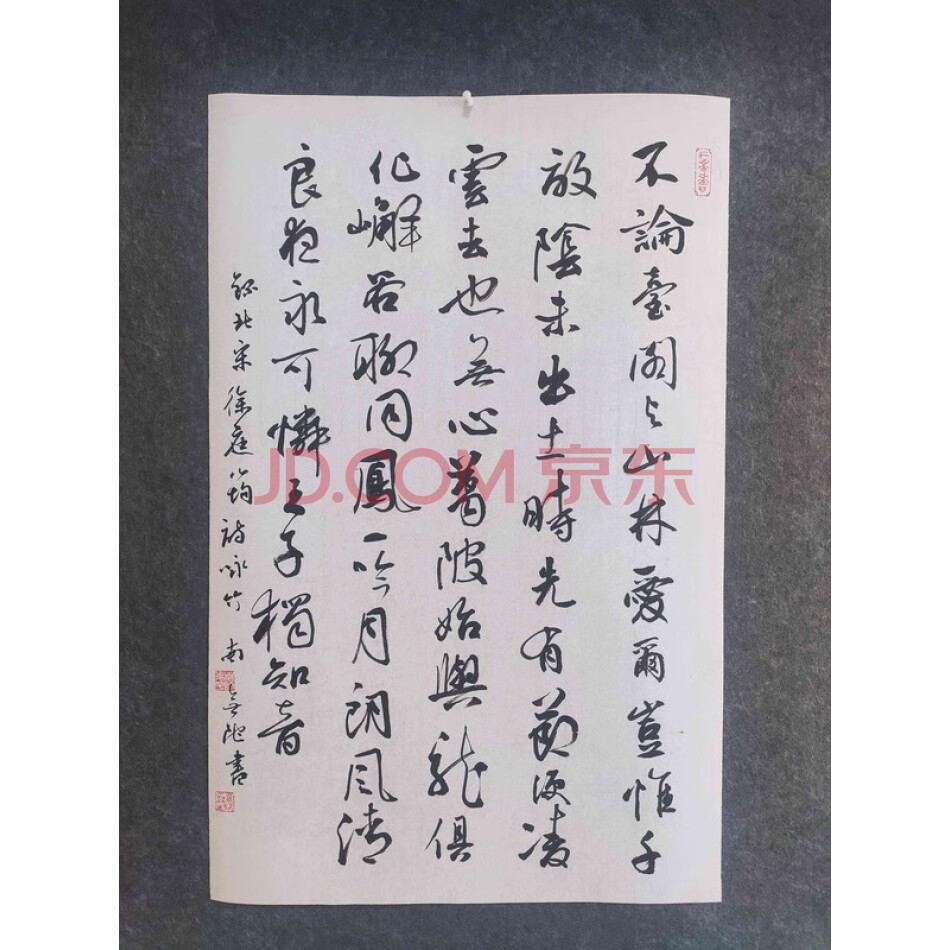 不論臺閣与山林愛爾豈惟千
畝陰未出土時先有節便凌
雲去也無心葛陂始與龍俱
化嶰谷聊同鳳一吟月朗風清
良夜永可憐王子獨知音
錄北宋徐庭筠詩咏竹 南 書
JD.COM 京东